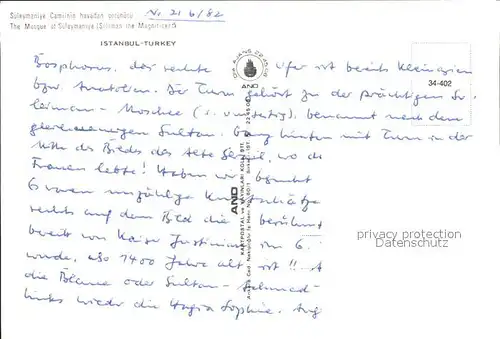 Süleymaniye Camiinin havadan görünüşü
The Mosque of Süleymaniye (Soliman the Magnificent)
Nr. 21 6/82
ISTANBUL-TURKEY
AND
34-402
Bosphorus, das rechte Ufer ist bereits Kleinasien
bzw. Anatolien. Der Turm gehört zu der prächtigen Su-
leiman-Moschee (s. umseitig), benannt nach dem
Sultan. Ganz hinten mit Turm in der
Mitte des Bildes das alte Serail, wo die
Frauen lebte! Haben wir
unzählige Kunstschätze
rechts auf dem Bild die berühmt
bereits von Kaiser Justinian im 6.
wurde, also 1400 Jahre alt ist!!
die Blaue oder Sultan-Achmed-
links wieder die Hagia Sophia.
AND
KARTPOSTAL ve YAYINLARI KOLL. ŞTİ.
privacy protection
Datenschutz